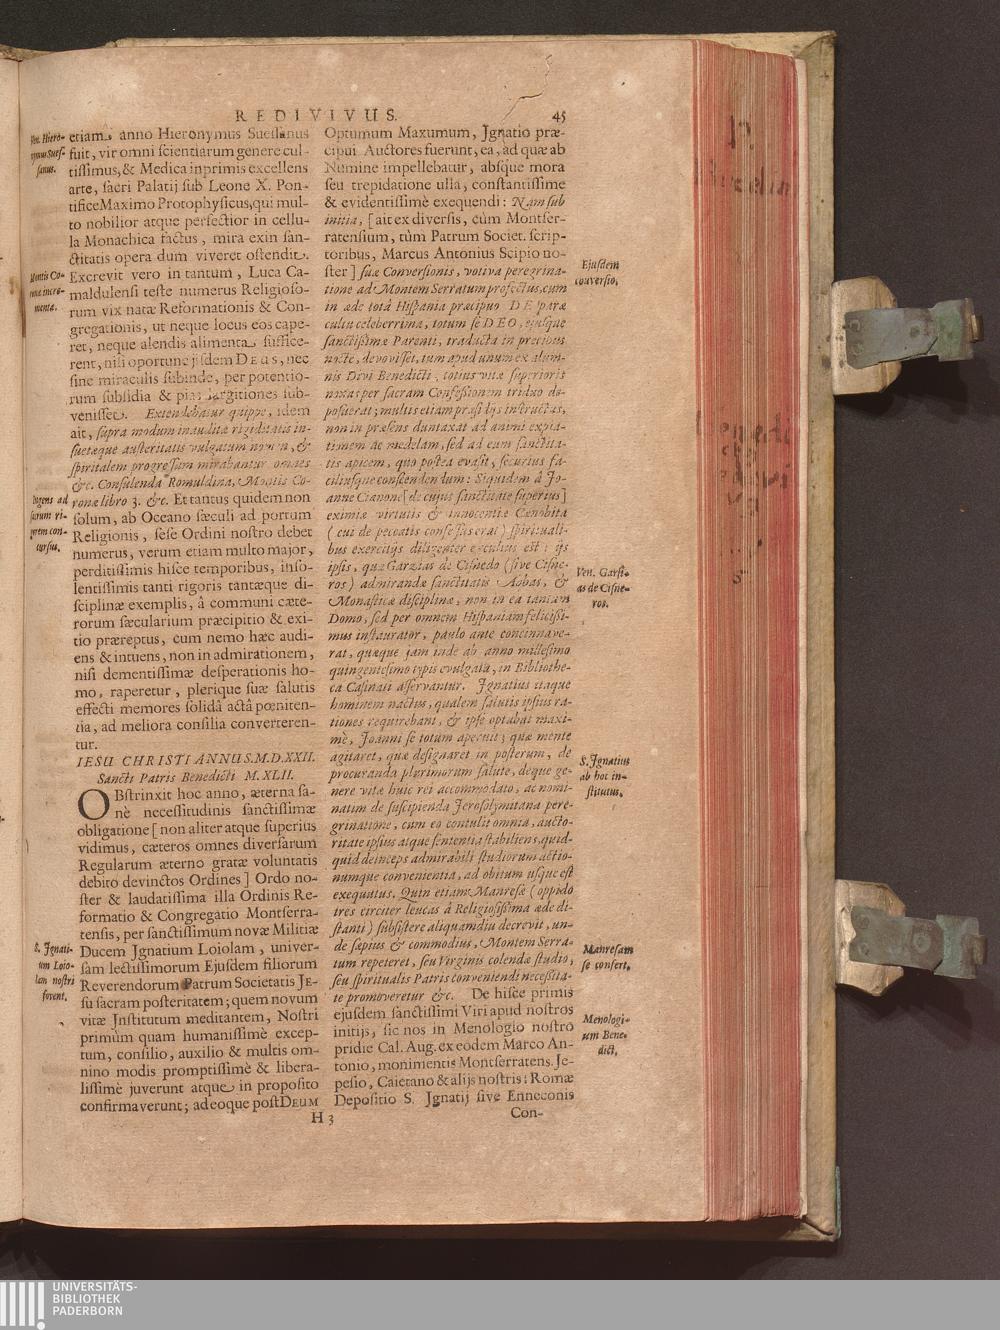 REDIVIVUS. 45
Ven. Hiero-
nymus Sues-
sanus.
etiam anno Hieronymus Suessanus
fuit, vir omni scientiarum genere cul-
tissimus, & Medica inprimis excellens
arte, sacri Palatij sub Leone X. Pon-
tifice Maximo Protophysicus, qui mul-
to nobilior atque perfectior in cellu-
la Monachica factus, mira exin san-
ctitatis opera dum viveret ostendit.
Montis Co-
ronæ incre-
menta.
Excrevit vero in tantum, Luca Ca-
maldulensi teste numerus Religioso-
rum vix natæ Reformationis & Con-
gregationis, ut neque locus eos cape-
ret, neque alendis alimenta suffice-
rent, nisi oportune ijsdem DEUS, nec
sine miraculis subinde, per potentio-
rum subsidia & pias largitiones sub-
venisset. Extendebatur quippe, idem
ait, supra modum inauditæ rigiditatis in-
suetæque austeritatis vulgatum nomen, &
spiritalem progressum mirabantur omnes
&c. Consulenda Romuldina, Montis Co-
Ingens ad
sacrum ri-
gorem con-
cursus.
ronæ libro 3. &c. Et tantus quidem non
solum, ab Oceano sæculi ad portum
Religionis, sese Ordini nostro debet
numerus, verum etiam multo major,
perditissimis hisce temporibus, inso-
lentissimis tanti rigoris tantæque di-
sciplinæ exemplis, â communi cæte-
rorum sæcularium præcipitio & exi-
tio præreptus, cum nemo hæc audi-
ens & intuens, non in admirationem,
nisi dementissimæ desperationis ho-
mo, raperetur, plerique suæ salutis
effecti memores solidâ actâ pœniten-
tia, ad meliora consilia converteren-
tur.
IESU CHRISTI ANNUS. M.D.XXII.
Sancti Patris Benedicti M. XLII.
OBstrinxit hoc anno, æterna sa-
nè necessitudinis sanctissimæ
obligatione [non aliter atque superius
vidimus, cæteros omnes diversarum
Regularum æterno gratæ voluntatis
debito devinctos Ordines] Ordo no-
ster & laudatissima illa Ordinis Re-
formatio & Congregatio Montserra-
tensis, per sanctissimum novæ Militiæ
S. Jgnati-
um Loio-
lam nostri
fovent.
Ducem Jgnatium Loiolam, univer-
sam lectissimorum Ejusdem filiorum
Reverendorum Patrum Societatis JE-
su sacram posteritatem; quem novum
vitæ Jnstitutum meditantem, Nostri
primùm quam humanissimè excep-
tum, consilio, auxilio & multis om-
nino modis promptissimè & libera-
lissimè juverunt atque in proposito
confirmaverunt; adeoque post DEUM
H 3
Optumum Maxumum, Jgnatio præ-
cipui Auctores fuerunt, ea, ad quæ ab
Numine impellebatur, absque mora
seu trepidatione ulla, constantissime
& evidentissimè exequendi: Nam sub
initia, [ait ex diversis, cùm Montser-
ratensium, tùm Patrum Societ. scrip-
toribus, Marcus Antonius Scipio no-
Ejusdem
conversio.
ster] suæ Conversionis, votiva peregrina-
tione ad Montem Serratum profectus, cum
in æde totâ Hispania præcipuo DEIparæ
cultu celeberrima, totum se DEO, ejusque
sanctissimæ Parenti, traducta in precibus
nocte, devovisset, tum apud unum ex alum-
nis Divi Benedicti, totius vitæ superioris
noxas per sacram Confessionem triduo de-
posuerat; multis etiam præsidijs instructus,
non in præsens duntaxat ad animi expia-
tionem ac medelam, sed ad eum sanctita-
tis apicem, quo postea evasit, securius fa-
ciliusque conscendendum: Siquidem â Jo-
anne Cianone [de cujus sanctitate superius]
eximiæ virtutis & innocentiæ Cænobita
(cui de peccatis confessus erat) spirituali-
bus exercitijs diligenter excultus est: ijs
ipsis, quæ Garzias de Cisnedo (sive Cisne-
Ven. Garsi-
as de Cisne-
ros.
ros) admirandæ sanctitatis Abbas, &
Monasticæ disciplinæ, non in ea tantum
Domo, sed per omnem Hispaniam felicissi-
mus instaurator, paulo ante concinnave-
rat, quæque jam inde ab anno millesimo
quingentesimo typis evulgata, in Bibliothe-
ca Casinati asservantur. Jgnatius itaque
hominem nactus, qualem salutis ipsius ra-
tiones requirebant, & ipse optabat maxi-
mè, Joanni se totum aperuit; quæ mente
S. Jgnatius
ab hoc in-
stitutus.
agitaret, quæ designaret in posterum, de
procuranda plurimorum salute, deque ge-
nere vitæ huic rei accommodato, ac nomi-
natim de suscipienda Jerosolymitana pere-
grinatione, cum eo contulit omnia, aucto-
ritate ipsius atque sententia stabiliens, quid-
quid deinceps admirabili studiorum actio-
numque convenientia, ad obitum usque est
exequutus. Quin etiam Manresæ (oppido
tres circiter leucas â Religiosissima æde di-
stanti) subsistere aliquamdiu decrevit, un-
Manresam
se confert.
de sæpius & commodius, Montem Serra-
tum repeteret, seu Virginis colendæ studio,
seu spiritualis Patris conveniendi necessita-
te promoveretur &c. De hisce primis
Menologi-
um Bene-
dict.
ejusdem sanctissimi Viri apud nostros
initijs, sic nos in Menologio nostro
pridie Cal. Aug. ex eodem Marco An-
tonio, monimentis Montserratens. Je-
pesio, Caietano & alijs nostris: Romæ
Depositio S. Jgnatij sive Enneconis
Con-
UNIVERSITÄTS-
BIBLIOTHEK
PADERBORN